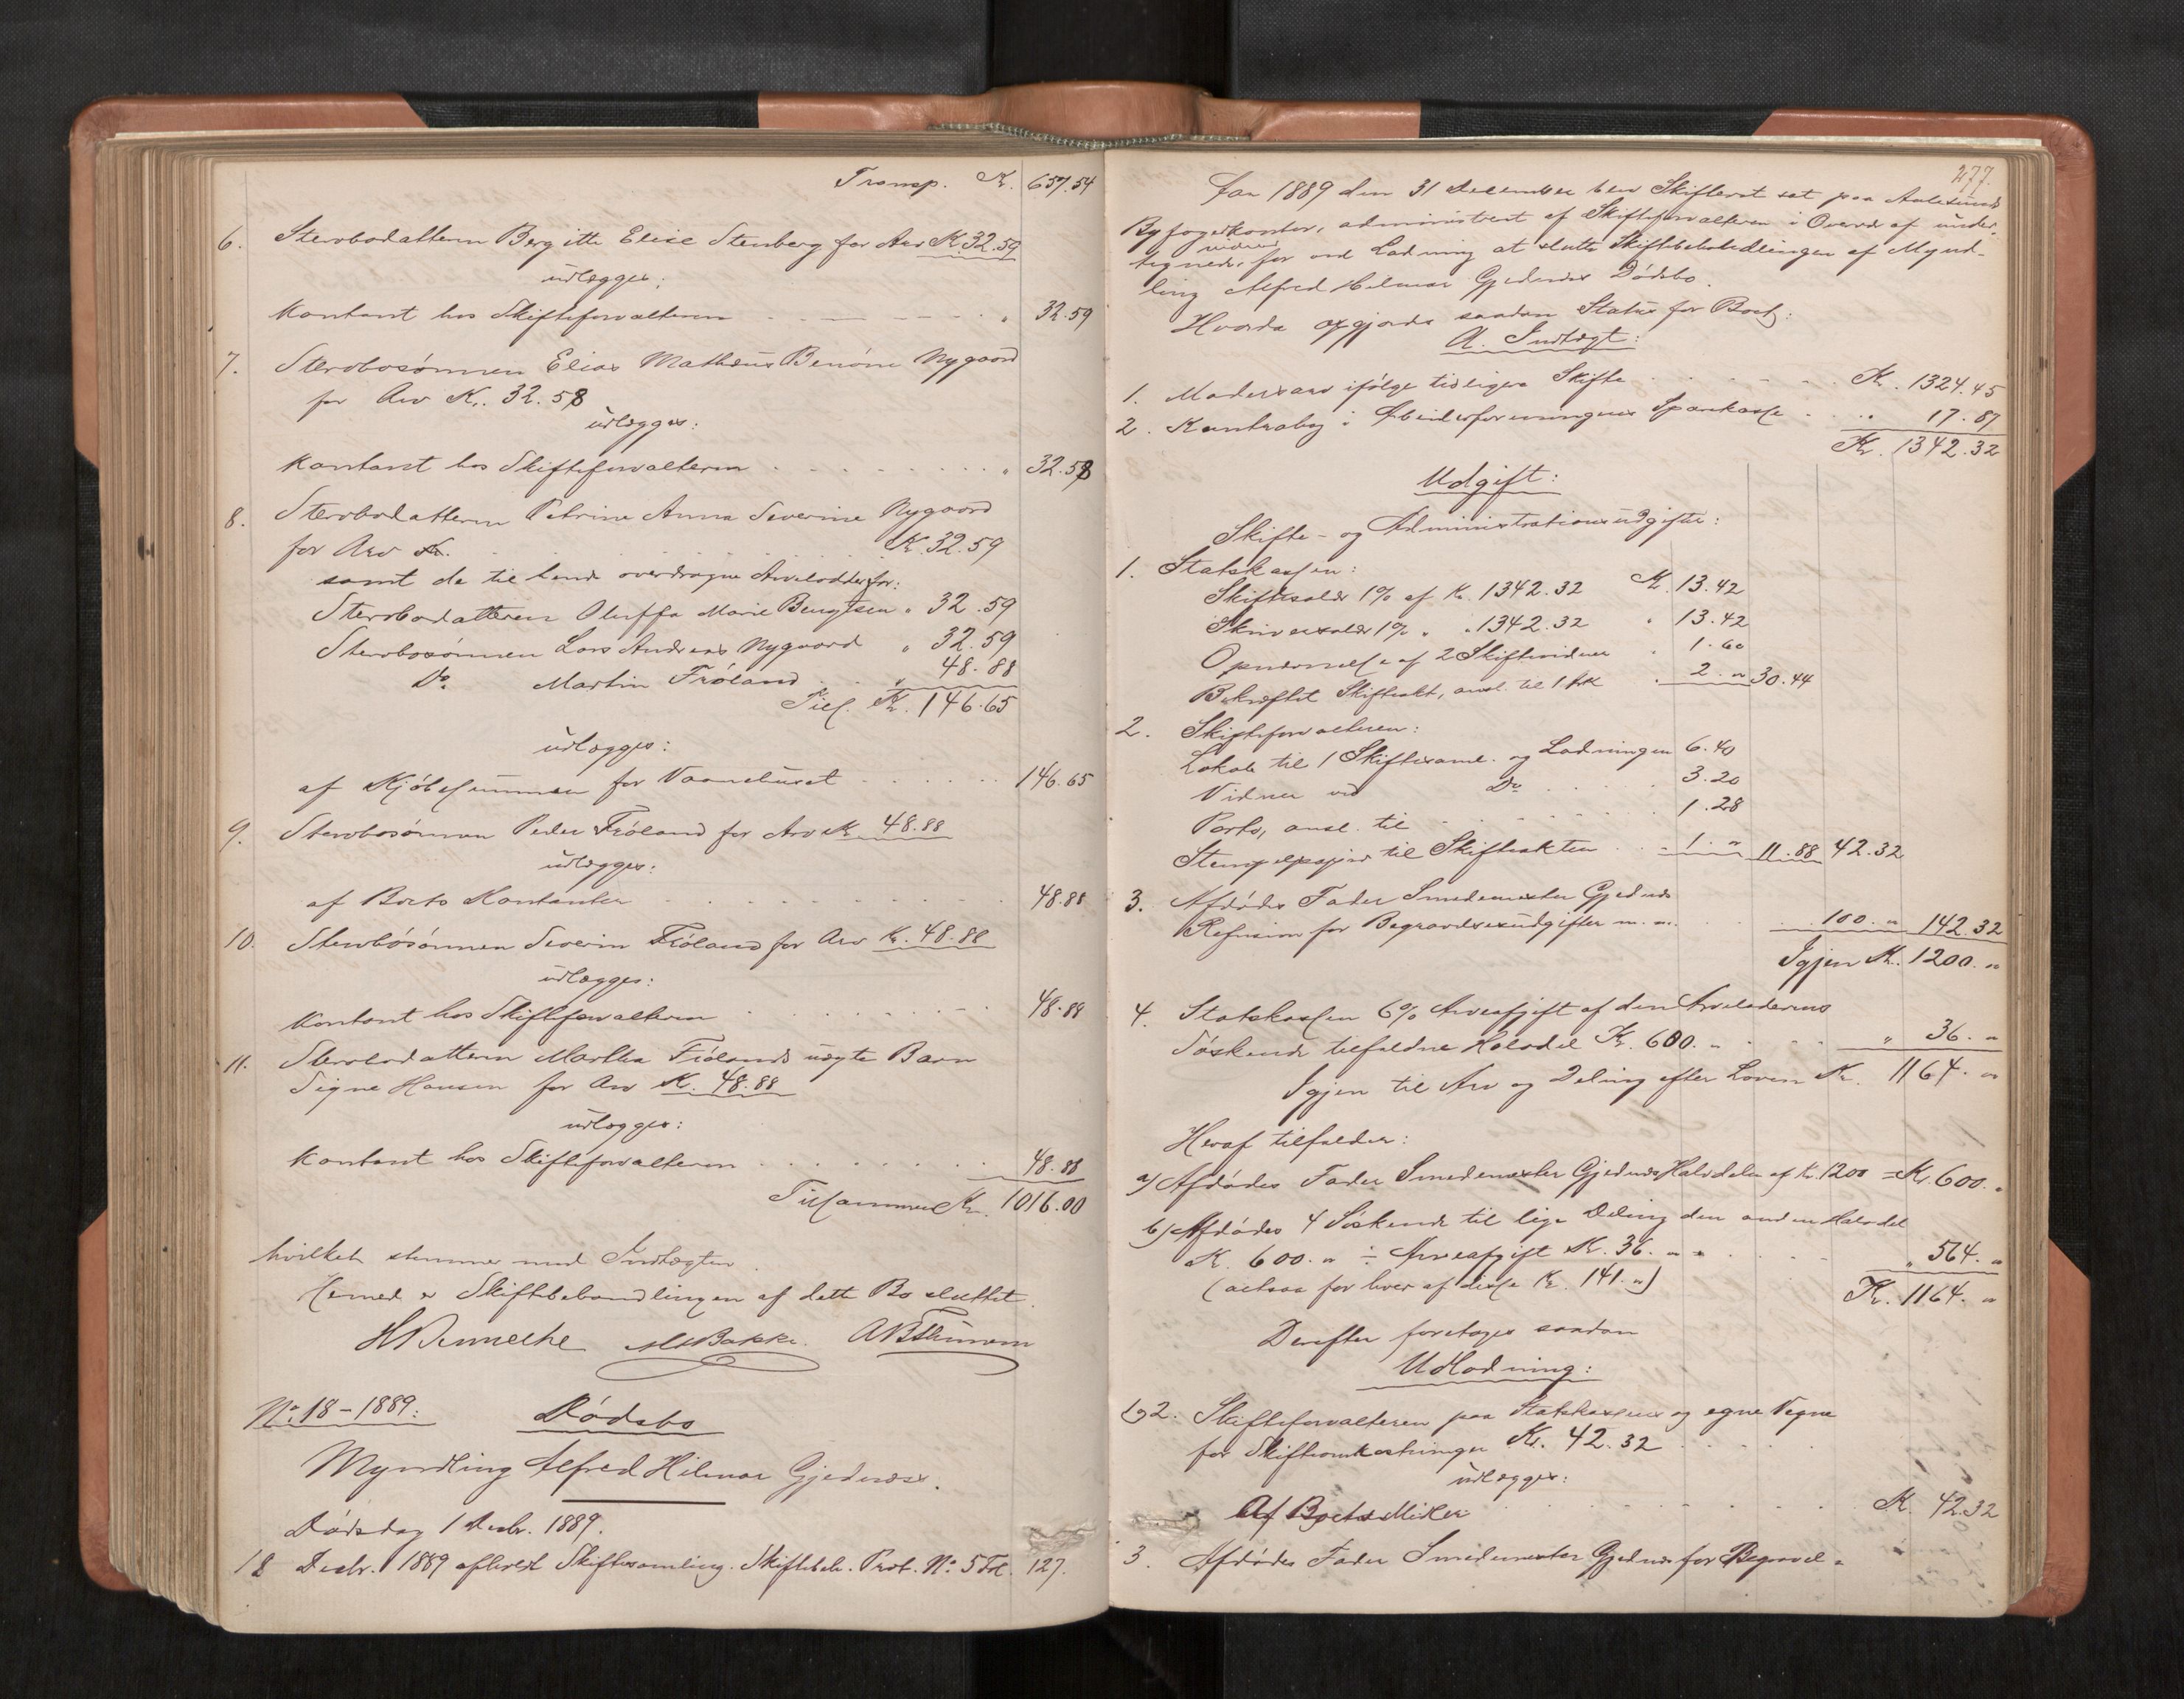 Transp. Kr. 657.54
6. Stervbodatteren Bergitte Elise Stenberg for Arv Kr. 32.59
udlægges:
Kontant hos Skifteforvalteren . . . . " 32.59
7. Stervbosønnen Elias Mathæus Benoni Nygaard
for Arv Kr. 32.58
udlægges:
Kontant hos Skifteforvalteren . . . . " 32.58
8. Stervbodatteren Petrine Anna Severine Nygaard
for Arv Kr. . . . Kr. 32.59
samt de til hende overdragne Arvelodder for:
Stervbodatteren Oluffa Marie Bengtsen " 32.59
Stervbosønnen Lars Andreas Nygaard " 32.59
Do. Martin Frøland . . " 48.88
Tils. Kr. 146.65
udlægges:
af Kjøbesummen for Vaanehuset . . . . 146.65
9. Stervbosønnen Peder Frøland for Arv Kr. 48.88
udlægges:
af Boets Kontanter . . . . 48.88
10. Stervbosønnen Severin Frøland for Arv Kr. 48.88
udlægges:
Kontant hos Skifteforvalteren . . . . 48.88
11. Stervbodatteren Martha Frølands uægte Barn
Signe Hansen for Arv Kr. 48.88
udlægges:
Kontant hos Skifteforvalteren . . . . 48.88
Tilsammen Kr. 1016.00
hvilket stemmer med Indtægten.
Hermed er Skiftebehandlingen af dette Bo sluttet.
No. 18 - 1889: Dødsbo
Myndling Alfred Hilmar Gjednæs.
Dødsdag 1 Decbr. 1889.
18 Decbr. 1889 afholdt Skiftesamling. Skiftebeh. Prot. No. 5 Fol. 127.
277.
Aar 1889 den 31 December blev Skifteret sat paa Aalesunds
Byfogedkontor, administreret af Skifteforvalteren i Overvær af under-
vidner
tegnede, for ved Lodning at slutte Skiftebehandlingen af Mynd-
ling Alfred Hilmar Gjednæs Dødsbo.
Hvorda opgjordes saadan Status for Boet:
A. Indtægt:
1. Mødrearv ifølge tidligere Skifte . . . . Kr. 1324.45
2. Kontrabog i Arbeiderforeningens Sparekasse . . . 17.87
Kr. 1342.32
Udgift:
Skifte- og Administrationsudgifter:
1. Statskassen:
Skiftesalær 1% af Kr. 1342.32 Kr. 13.42
Skriversalær 1% " " 1342.32 " 13.42
Opnævnelse af 2 Skiftevidner " 1.60
Bekræftet Skifteakt, ansl. til 1 Ark " 2. " 30.44
2. Skifteforvalteren:
Lokale til 1 Skiftesaml. og Lodningen 6.40
Vidner ved Do . . . 3.20
Porto, ansl. til . . . . 1.28
Stempelpapir til Skifteakten . . 1. " 11.88 42.32
3. Afdødes Fader Smedemester Gjednæs
Refusion for Begravelsesudgifter m. m. . . . 100. " 142.32
Igjen Kr. 1200. "
4. Statskassen 6% Arveafgift af den Arveladerens
Søskende tilfaldne Halvdel Kr. 600. " . . . " 36. "
Igjen til Arv og Deling efter Loven Kr. 1164. "
Heraf tilfalder:
a) Afdødes Fader Smedemester Gjednæs Halvdelen af Kr. 1200 = Kr. 600. "
b) Afdødes 4 Søskende til lige Deling den anden Halvdel
Kr. 600. " ÷ Arveafgift Kr. 36. " = . . . " 564. "
(altsaa for hver af disse Kr. 141. ")
Kr. 1164. "
Derefter foretages saadan
Udlodning:
1 og 2. Skifteforvalteren paa Statskassens og egne Vegne
for Skifteomkostninger Kr. 42.32 . . . .
udlægges:
Af Boets Midler . . . . Kr. 42.32
3. Afdødes Fader Smedemester Gjednæs for Begravel-